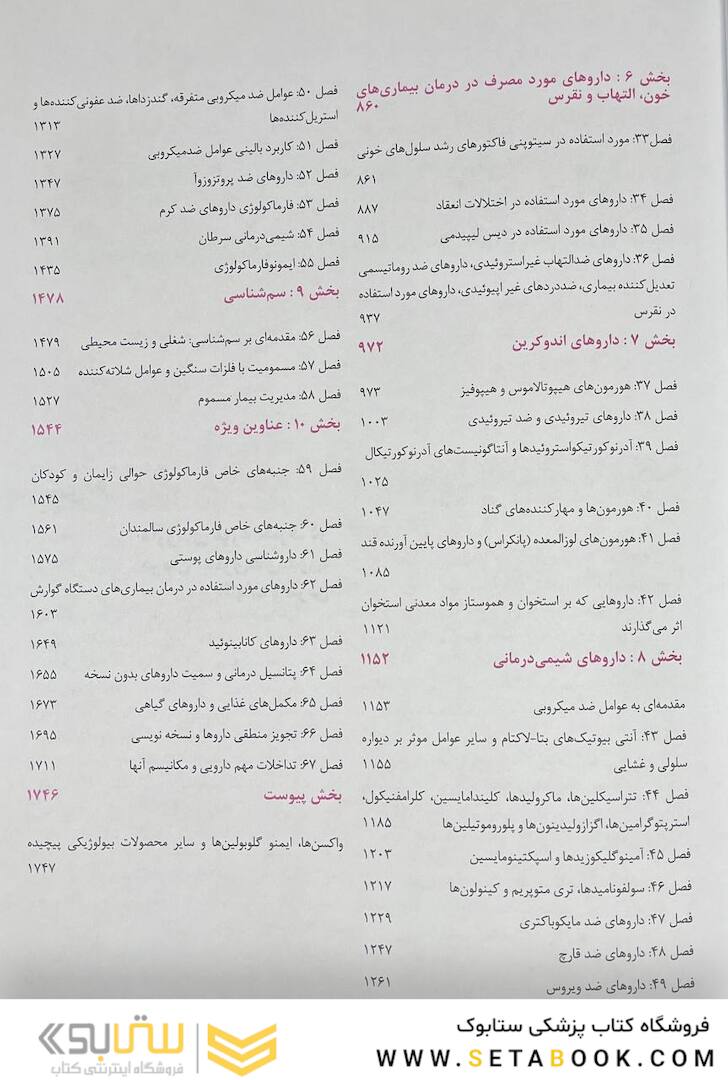 بخش ۶ : داروهای مورد مصرف در درمان بیماری‌های
خون، التهاب و نقرس
۸۶۰
فصل۳۳: مورد استفاده در سیتوپنی فاکتورهای رشد سلول‌های خونی
۸۶۱
فصل ۳۴: داروهای مورد استفاده در اختلالات انعقاد ۸۸۷
فصل ۳۵: داروهای مورد استفاده در دیس لیپیدمی ۹۱۵
فصل ۳۶: داروهای ضدالتهاب غیراستروئیدی، داروهای ضد روماتیسمی
تعدیل‌کننده بیماری، ضددردهای غیر اپیوئیدی، داروهای مورد استفاده
در نقرس ۹۳۷
بخش ۷ : داروهای اندوکرین ۹۷۲
فصل ۳۷: هورمون‌های هیپوتالاموس و هیپوفیز ۹۷۳
فصل ۳۸: داروهای تیروئیدی و ضد تیروئیدی ۱۰۰۳
فصل ۳۹: آدرنوکورتیکواستروئیدها و آنتاگونیست‌های آدرنوکورتیکال
۱۰۲۵
فصل ۴۰: هورمون‌ها و مهارکننده‌های گناد ۱۰۴۷
فصل ۴۱: هورمون‌های لوزالمعده (پانکراس) و داروهای پایین آورنده قند
۱۰۸۵
فصل ۴۲: داروهایی که بر استخوان و هموستاز مواد معدنی استخوان
اثر می‌گذارند ۱۱۲۱
بخش ۸ : داروهای شیمی‌درمانی ۱۱۵۲
مقدمه‌ای به عوامل ضد میکروبی ۱۱۵۳
فصل ۴۳: آنتی بیوتیک‌های بتا-لاکتام و سایر عوامل موثر بر دیواره
سلولی و غشایی ۱۱۵۵
فصل ۴۴: تتراسیکلین‌ها، ماکرولیدها، کلیندامایسین، کلرامفنیکول،
استرپتوگرامین‌ها، اگزازولیدینون‌ها و پلوروموتیلین‌ها ۱۱۸۵
فصل ۴۵: آمینوگلیکوزیدها و اسپکتینومایسین ۱۲۰۳
فصل ۴۶: سولفونامیدها، تری متوپریم و کینولون‌ها ۱۲۱۷
فصل ۴۷: داروهای ضد مایکوباکتری ۱۲۲۹
فصل ۴۸: داروهای ضد قارچ ۱۲۴۷
فصل ۴۹: داروهای ضد ویروس ۱۲۶۱
فصل ۵۰: عوامل ضد میکروبی متفرقه، گندزداها، ضد عفونی‌کننده‌ها و
استریل‌کننده‌ها ۱۳۱۳
فصل ۵۱: کاربرد بالینی عوامل ضدمیکروبی ۱۳۲۷
فصل ۵۲: داروهای ضد پروتزوزوآ ۱۳۴۷
فصل ۵۳: فارماکولوژی داروهای ضد کرم ۱۳۷۵
فصل ۵۴: شیمی‌درمانی سرطان ۱۳۹۱
فصل ۵۵: ایمونوفارماکولوژی ۱۴۳۵
بخش ۹ : سم‌شناسی ۱۴۷۸
فصل ۵۶: مقدمه‌ای بر سم‌شناسی: شغلی و زیست محیطی ۱۴۷۹
فصل ۵۷: مسمومیت با فلزات سنگین و عوامل شلاته‌کننده ۱۵۰۵
فصل ۵۸: مدیریت بیمار مسموم ۱۵۲۷
بخش ۱۰ : عناوین ویژه ۱۵۴۴
فصل ۵۹: جنبه‌های خاص فارماکولوژی حوالی زایمان و کودکان
۱۵۴۵
فصل ۶۰: جنبه‌های خاص فارماکولوژی سالمندان ۱۵۶۱
فصل ۶۱: داروشناسی داروهای پوستی ۱۵۷۵
فصل ۶۲: داروهای مورد استفاده در درمان بیماری‌های دستگاه گوارش
۱۶۰۳
فصل ۶۳: داروهای کانابینوئید ۱۶۴۹
فصل ۶۴: پتانسیل درمانی و سمیت داروهای بدون نسخه ۱۶۵۵
فصل ۶۵: مکمل‌های غذایی و داروهای گیاهی ۱۶۷۳
فصل ۶۶: تجویز منطقی داروها و نسخه نویسی ۱۶۹۵
فصل ۶۷: تداخلات مهم دارویی و مکانیسم آنها ۱۷۱۱
بخش پیوست ۱۷۴۶
واکسن‌ها، ایمنو گلوبولین‌ها و سایر محصولات بیولوژیکی پیچیده
۱۷۴۷
فروشگاه کتاب پزشکی ستابوک
WWW.SETABOOK.COM
ستابوک
فروشگاه اینترنتی کتاب